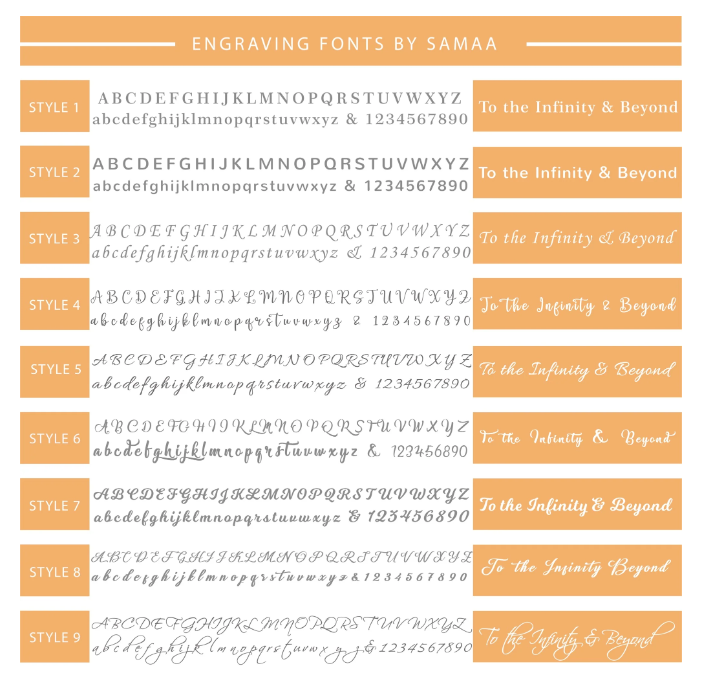 ENGRAVING FONTS BY SAMAA
STYLE 1
ABCDEFGHIJKLMNOPQRSTUVWXYZ
abcdefghijklmnopqrstuvwxyz & 1234567890
To the Infinity & Beyond
STYLE 2
ABCDEFGHIJKLMNOPQRSTUVWXYZ
abcdefghijklmnopqrstuvwxyz & 1234567890
To the Infinity & Beyond
STYLE 3
ABCDEFGHIJKLMNOPQRSTUVWXYZ
abcdefghijklmnopqrstuvwxyz & 1234567890
To the Infinity & Beyond
STYLE 4
ABCDEFGHIJKLMNOPQRSTUVWXYZ
abcdefghijklmnopqrstuvwxyz & 1234567890
To the Infinity & Beyond
STYLE 5
ABCDEFGHIJKLMNOPQRSTUVWXYZ
abcdefghijklmnopqrstuvwxyz & 1234567890
To the Infinity & Beyond
STYLE 6
ABCDEFGHIJKLMNOPQRSTUVWXYZ
abcdefghijklmnopqrstuvwxyz & 1234567890
To the Infinity & Beyond
STYLE 7
ABCDEFGHIJKLMNOPQRSTUVWXYZ
abcdefghijklmnopqrstuvwxyz & 1234567890
To the Infinity & Beyond
STYLE 8
ABCDEFGHIJKLMNOPQRSTUVWXYZ
abcdefghijklmnopqrstuvwxyz & 1234567890
To the Infinity Beyond
STYLE 9
ABCDEFGHIJKLMNOPQRSTUVWXYZ
abcdefghijklmnopqrstuvwxyz & 1234567890
To the Infinity & Beyond